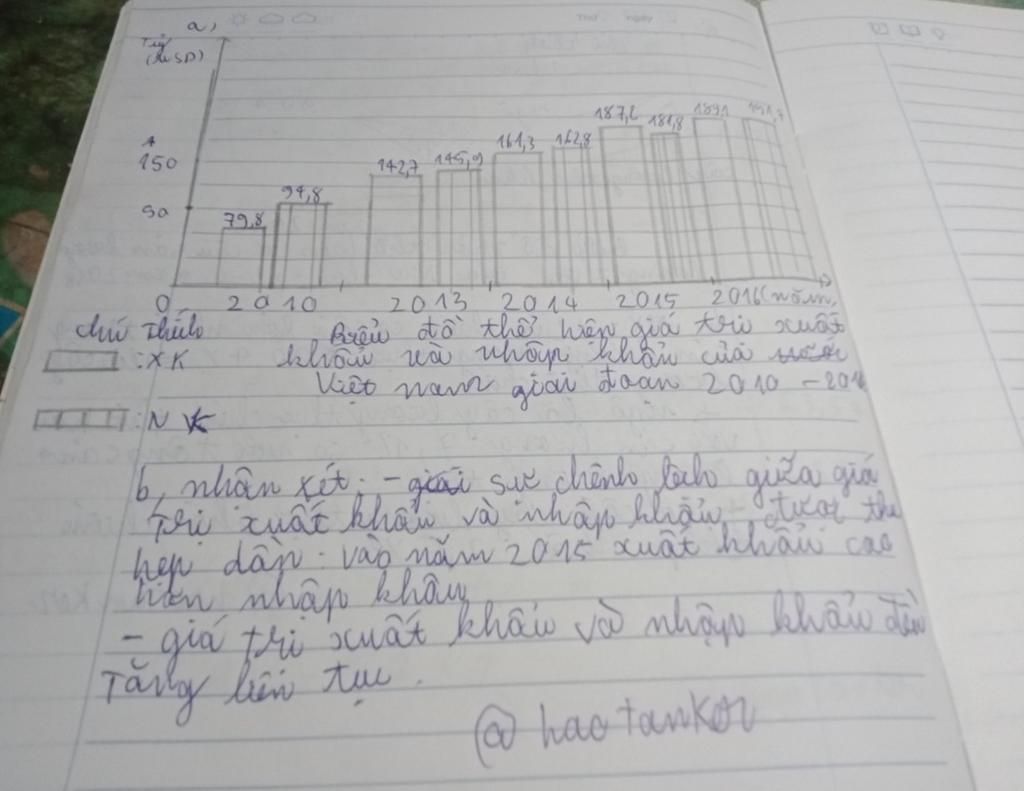 a,
Tỷ
(USD)
150
90
79,8
94,8
142,7
145,9
161,3
162,8
187,2
181,8
189,1
0
2010
2013
2014
2015
2016 (năm)
chú thích
: XK
: NK
Biểu đồ thể hiện giá trị xuất
khẩu và nhập khẩu của
Việt nam giai đoạn 2010 - 2016
b, nhận xét: - sự chênh lệch giữa giá
trị xuất khẩu và nhập khẩu - được thu
hẹp dần: vào năm 2015 xuất khẩu cao
hơn nhập khẩu
- giá trị xuất khẩu và nhập khẩu đều
Tăng liên tục.
@haotankor